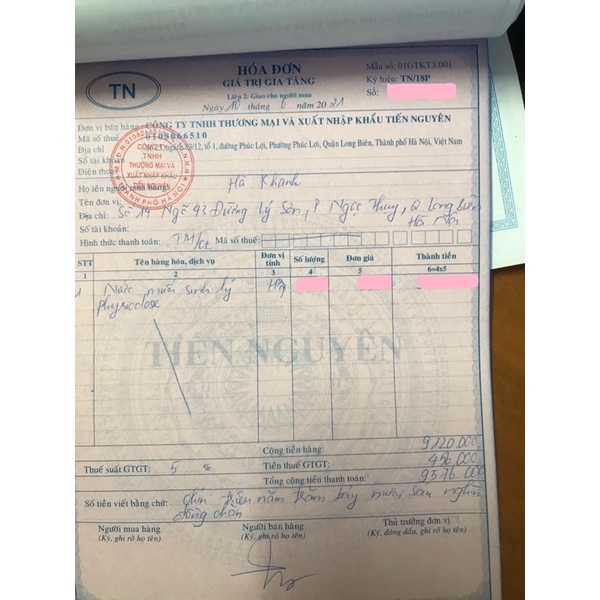 TN
HÓA ĐƠN
GIÁ TRỊ GIA TĂNG
Liên 2: Giao cho người mua
Ngày 10 tháng 6 năm 2021
Mẫu số: 01GTKT3/001
Ký hiệu: TN/18P
Số:
Đơn vị bán hàng: CÔNG TY TNHH THƯƠNG MẠI VÀ XUẤT NHẬP KHẨU TIẾN NGUYÊN
Mã số thuế
Địa chỉ tổ-1, đường Phúc Lợi, Phường Phúc Lợi, Quận Long Biên, Thành phố Hà Nội, Việt Nam
Số tài khoản
Điện thoại
CÔNG TY
TNHH
THƯƠNG MẠI VÀ
XUẤT NHẬP KHẨU
TIẾN NGUYÊN
Họ tên người mua hàng: Hà Khanh
Tên đơn vị:
Địa chỉ: Số 19 Ngõ 93 Đường Lý Sơn, P Ngọc Thụy, Q Long Biên
Hà Nội
Số tài khoản:
Hình thức thanh toán: TM/CK Mã số thuế:
STT Tên hàng hóa, dịch vụ Đơn vị tính Số lượng Đơn giá Thành tiền
1 2 3 4 5 6=4x5
1 Nước muối sinh lý
physiodose
TIẾN NGUYÊN
Cộng tiền hàng: 9.120.000
Thuế suất GTGT: 5 % Tiền thuế GTGT: 456.000
Tổng cộng tiền thanh toán: 9.576.000
Số tiền viết bằng chữ: chín triệu năm trăm bảy mươi sáu nghìn
đồng chẵn
Người mua hàng Người bán hàng Thủ trưởng đơn vị
(Ký, ghi rõ họ tên) (Ký, ghi rõ họ tên) (Ký, đóng dấu, ghi rõ họ tên)